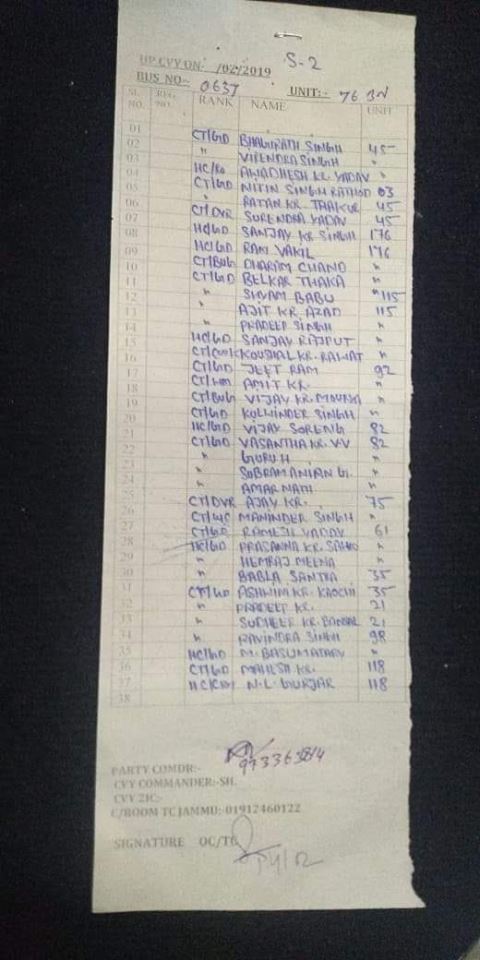 S-2
UP CVY ON- /02/2019
BUS NO:- 0637 UNIT:- 76 BN
SL NO. REG NO. RANK NAME UNIT
01 CT/GD BHAGIRATH SINGH 45
02 " VIRENDRA SINGH "
03 HC/RO AWADHESH KR. YADAV "
04 CT/GD NITIN SINGH RATHOD 03
05 " RATAN KR. THAKUR 45
06 CT/DVR SURENDRA YADAV 45
07 HC/GD SANJAY KR. SINGH 176
08 HC/GD RAM VAKIL 176
09 CT/BUG DHARAM CHAND "
10 CT/GD BELKAR THAKA "
11 " SHYAM BABU "115
12 " AJIT KR. AZAD 115
13 " PRADEEP SINGH "
14 HC/GD SANJAY RAJPUT "
15 CT/COOK KOUSHAL KR. RAWAT "
16 CT/GD JEET RAM 92
17 AMIT KR. "
18 CT/BUG VIJAY KR. MOURYA "
19 CT/GD KULWINDER SINGH "
20 HC/GD VIJAY SORENG 82
21 CT/GD VASANTHA KR. V.V 82
22 " GURU H "
23 " SUBRAMANIAN G. "
24 " AMAR NATH "
25 CT/DVR AJAY KR. 75
26 MANINDER SINGH "
27 CT/GD RAMESH YADAV 61
28 HC/GD PRASANNA KR. SAHOO "
29 " HEMRAJ MEENA "
30 " BABLA SANTRA 35
31 CT/GD ASHWINI KR. KAOCHI 35
32 " PRADEEP KR. 21
33 " SUDHEER KR. BANSAL 21
34 " RAVINDRA SINGH 98
35 HC/GD M. BASUMATARY "
36 CT/GD MAHESH KR. 118
37 N. L. GURJAR 118
38
PARTY COMDR:-
CVY COMMANDER:-SH.
CVY 2IC:-
C/ROOM TC JAMMU:-01912460122
SIGNATURE OC/TC